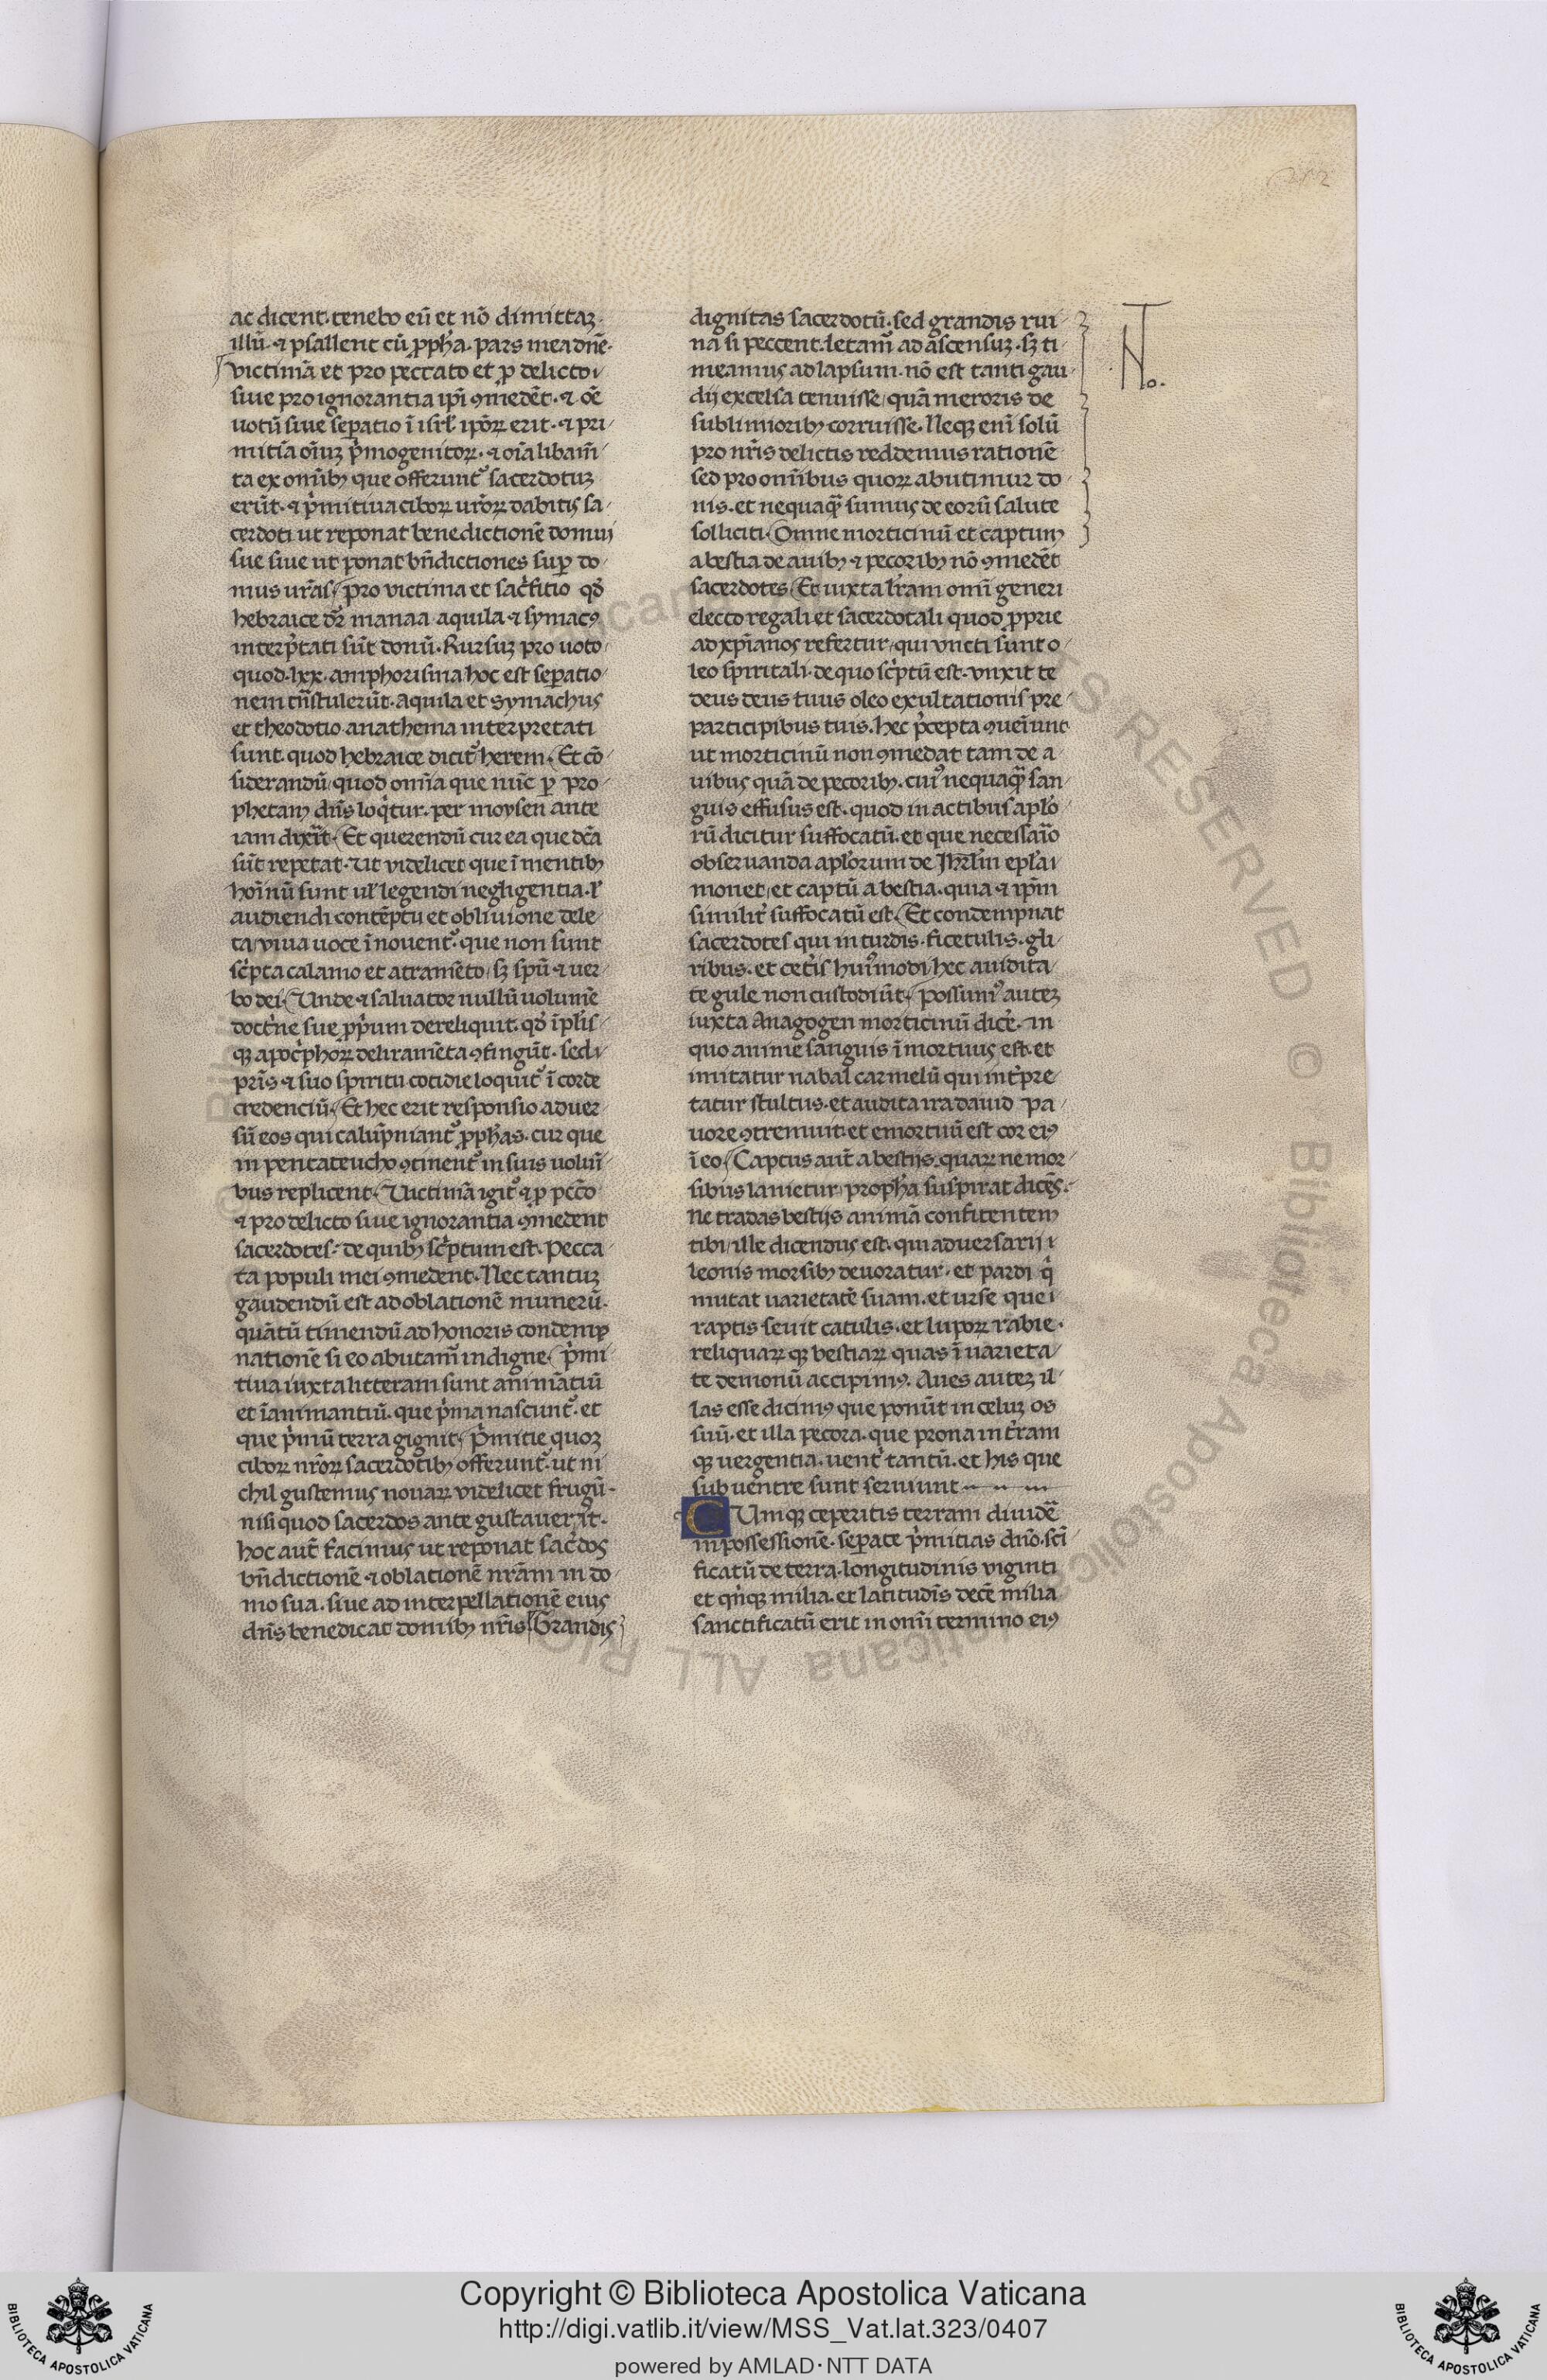 ac dicent. tenebo eũ et nõ dimittaꝫ
illũ. ⁊ psallent cũ ꝓpha. pars mea dñe.
victimã et pro peccato et ꝓ delicto
siue pro ignorantia ipi ꝯmedẽt. ⁊ oẽ
uotũ siue seꝑatio ĩ isrl ipoꝝ erit. ⁊ pri
mitia oĩuꝫ pͥmogenitoꝝ. ⁊ oĩa libam̃
ta ex omĩbꝫ que offerunt᷑ sacerdotuꝫ
erũt. ⁊ pͥmitiua ciboꝝ ur̃oꝝ dabitis sa
cerdoti ut reponat benedictionẽ domui
sue siue ut ponat bñdictiones suꝑ do
mus ur̃as. pro victima et sacͥfitio qđ
hebraice dr̃ manaa aquila ⁊ symacꝰ
interpͥtati sũt donũ. Rursuꝫ pro uoto
quod .lxx. amphorisma hoc est seꝑatio
nem tñstulerũt. Aquila et symachus
et theodotio anathema interpretati
sunt. quod hebraice dicit᷑ herem. Et cõ
siderandũ quod omĩa que nũc ꝑ pro
phetam dñs loqͥtur. per moysen ante
iam dixẽit. Et querendũ cur ea que dc̃a
sũt repetat. Ut videlicet que ĩ mentibꝫ
hoĩnũ sunt ul̃ legendi negligentia. ł
audiendi contẽptu et obliuione dele
ta viua uoce ĩnouent᷑. que non sunt
scͥpta calamo et atramẽto sꝫ spũ ⁊ uer
bo dei. Unde ⁊ saluator nullũ uolumẽ
doctͥne sue ꝓpͥum dereliquit. qđ ĩ pl̃is
qꝫ apocͥphoꝝ deliramẽta ꝯfingũt. sed
pr̃is ⁊ suo spiritu cotidie loquit᷑ ĩ corde
credenciũ. Et hec erit responsio aduer
sũ eos qui calũpniant᷑ ꝓphas. cur que
in pentateucho ꝯtinent᷑ in suis uolũi
bus replicent. Victimã igit᷑ ⁊ ꝓ pcc̃o
⁊ pro delicto siue ignorantia ꝯmedent
sacerdotes. de quibꝫ scͥptum est. Pecca
ta populi mei ꝯmedent. Nec tantuꝫ
gaudendũ est ad oblationẽ munerũ.
quãtũ timendũ ad honoris condemp
nationẽ si eo abutam᷑ indigne. pͥmi
tiua iuxta litteram sunt animãtiũ
et ĩanimantiũ. que pͥma nascunt᷑. et
que pͥmũ terra gignit. pͥmitie quoꝫ
ciboꝝ nr̃oꝝ sacerdotibꝫ offerunt᷑. ut ni
chil gustemus nouaꝝ videlicet frugũ.
nisi quod sacerdos ante gustauerit.
hoc aut̃ facimus ut reponat sacͥdos
bñdictionẽ ⁊ oblationẽ nr̃am in do
mo sua. siue ad interpellationẽ eius
dñs benedicat domibꝫ nr̃is. Grandis
dignitas sacerdotũ. sed grandis rui
na si peccent. letam᷑ ad ascensuꝫ. sꝫ ti
meamus ad lapsum. nõ est tanti gau
dij excelsa tenuisse quã meroris de
sublimioribꝫ corruisse. Neqꝫ enĩ solũ
pro nr̃is delictis reddemus rationẽ
sed pro omĩbus quoꝝ abutimur do
nis. et nequaqͣ̃ sumus de eorũ salute
solliciti. Omne morticinũ et captum
a bestia de auibꝫ ⁊ pecoribꝫ nõ ꝯmedẽt
sacerdotes. Et iuxta lr̃am omĩ generi
electo regali et sacerdotali quod ꝓprie
ad xp̃ianos refertur. qui vncti sunt o
leo spiritali. de quo scͥptũ est. vnxit te
deus deus tuus oleo exultationis pre
participibus tuis. hec pͥcepta ꝯueĩunt
ut morticinũ non ꝯmedat tam de a
uibus quã de pecoribꝫ. cuiꝰ nequaqͣ̃ san
guis effusus est. quod in actibus apl̃o
rũ dicitur suffocatũ. et que necessario
obseruanda apl̃orum de Ihrl̃m epl̃ai
monet et captũ a bestia. quia ⁊ ip̃m
similit᷑ suffocatũ est. Et condempnat
sacerdotes qui in turdis. ficetulis. gli
ribus. et cetͥis huiꝰmodi hec auidita
te gule non custodiũt. possumꝰ auteꝫ
iuxta Anagogen morticinũ dicͥe. in
quo anime sanguis ĩ mortuus est. et
imitatur nabal carmelũ qui intͥpre
tatur stultus. et audita ira dauid pa
uore ꝯtremuit. et emortuũ est cor eiꝰ
ĩ eo. Captus aut̃ a bestijs. quaꝝ ne mor
sibus lanietur propha suspirat dicẽs.
Ne tradas bestijs animã confitentem
tibi. ille dicendus est. qui aduersarij
leonis morsibꝫ deuoratur. et pardi qͥ
mutat uarietatẽ suam. et urse que
raptis seuit catulis. et lupoꝝ rabie.
reliquaꝝ qꝫ bestiaꝝ quas ĩ uarieta
te demonũ accipimꝰ. Aues auteꝫ il
las esse dicimꝰ que ponũt in celuꝫ os
suũ. et illa pecora. que prona in tͥram
qꝫ uergentia. uentͥ tantũ. et his que
sub uentre sunt seruiunt
CUmqꝫ ceperitis terram diuidẽ
in possessionẽ. seꝑate pͥmitias dño. sc̃i
ficatũ de terra. longitudinis viginti
et qͥnqꝫ milia. et latitudĩs decẽ milia
sanctificatũ erit in omĩ termino eiꝰ
No.
Copyright © Biblioteca Apostolica Vaticana
http://digi.vatlib.it/view/MSS_Vat.lat.323/0407
powered by AMLAD·NTT DATA
BIBLIOTECA APOSTOLICA VATICANA
BIBLIOTECA APOSTOLICA VATICANA